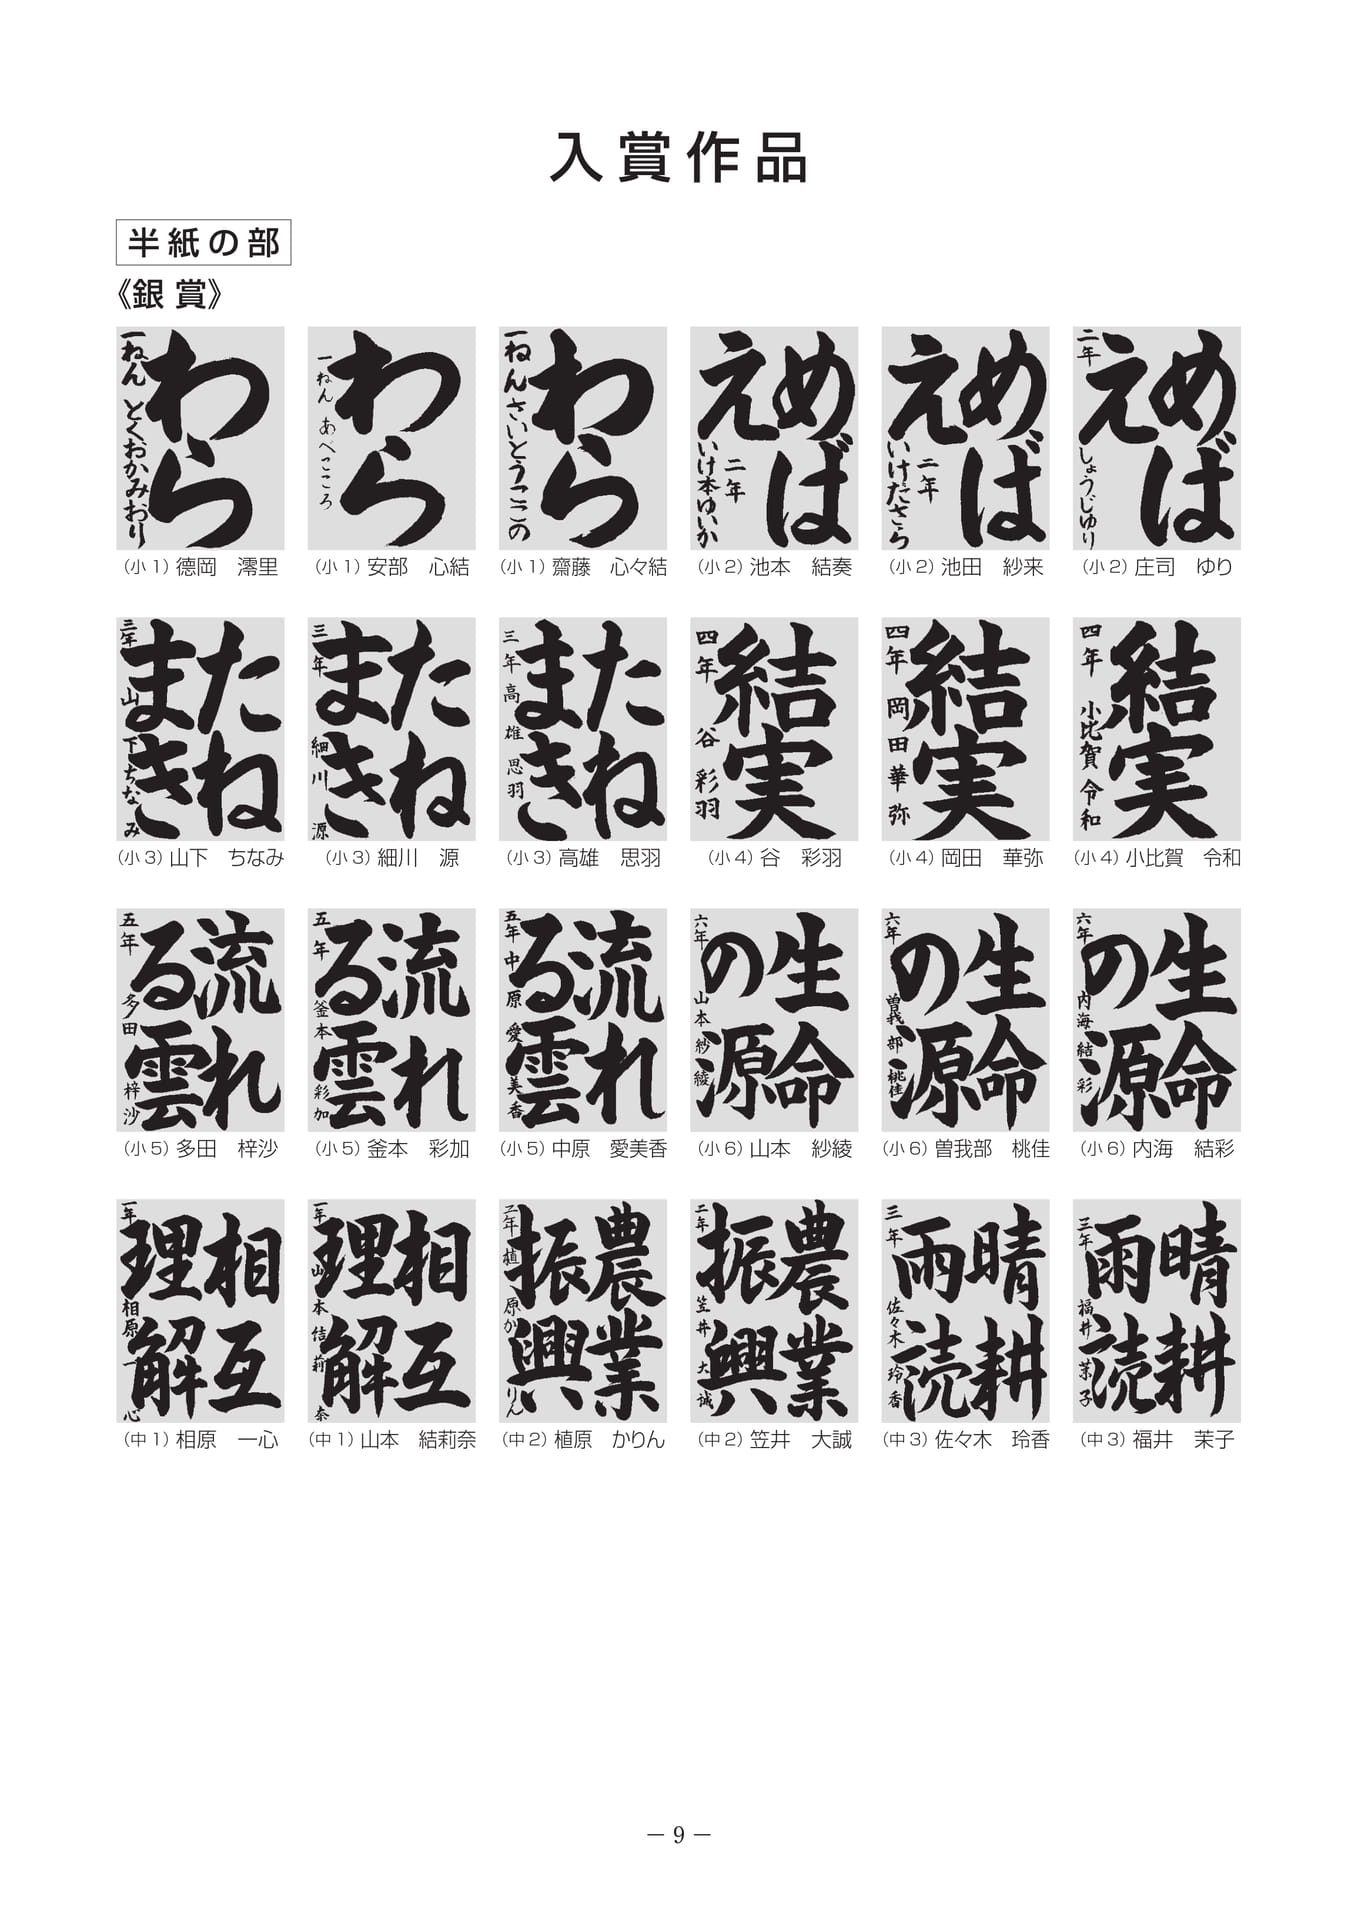 入賞作品
半紙の部
《銀 賞》
わら
一ねん とくおかみおり
わら
一ねん あべこころ
わら
一ねん さいとうここの
めば
え
二年
いけ本ゆいか
めば
え
二年
いけださら
めば
え
二年
しょうじゆり
(小1) 徳岡　澪里
(小1) 安部　心結
(小1) 齋藤　心々結
(小2) 池本　結奏
(小2) 池田　紗来
(小2) 庄司　ゆり
たね
まき
三年 山下ちなみ
たね
まき
三年 細川 源
たね
まき
三年 高雄 思羽
結実
四年 谷 彩羽
結実
四年 岡田 華弥
結実
四年 小比賀 令和
(小3) 山下　ちなみ
(小3) 細川　源
(小3) 高雄　思羽
(小4) 谷　彩羽
(小4) 岡田　華弥
(小4) 小比賀　令和
流れ
る雲
五年 多田 梓沙
流れ
る雲
五年 釜本 彩加
流れ
る雲
五年 中原 愛美香
生命
の源
六年 山本 紗綾
生命
の源
六年 曽我部 桃佳
生命
の源
六年 内海 結彩
(小5) 多田　梓沙
(小5) 釜本　彩加
(小5) 中原　愛美香
(小6) 山本　紗綾
(小6) 曽我部　桃佳
(小6) 内海　結彩
相互
理解
一年 相原 一心
相互
理解
一年 山本 結莉奈
農業
振興
二年 植原かりん
農業
振興
二年 笠井 大誠
晴耕
雨読
三年 佐々木 玲香
晴耕
雨読
三年 福井 茉子
(中1) 相原　一心
(中1) 山本　結莉奈
(中2) 植原　かりん
(中2) 笠井　大誠
(中3) 佐々木　玲香
(中3) 福井　茉子
― 9 ―